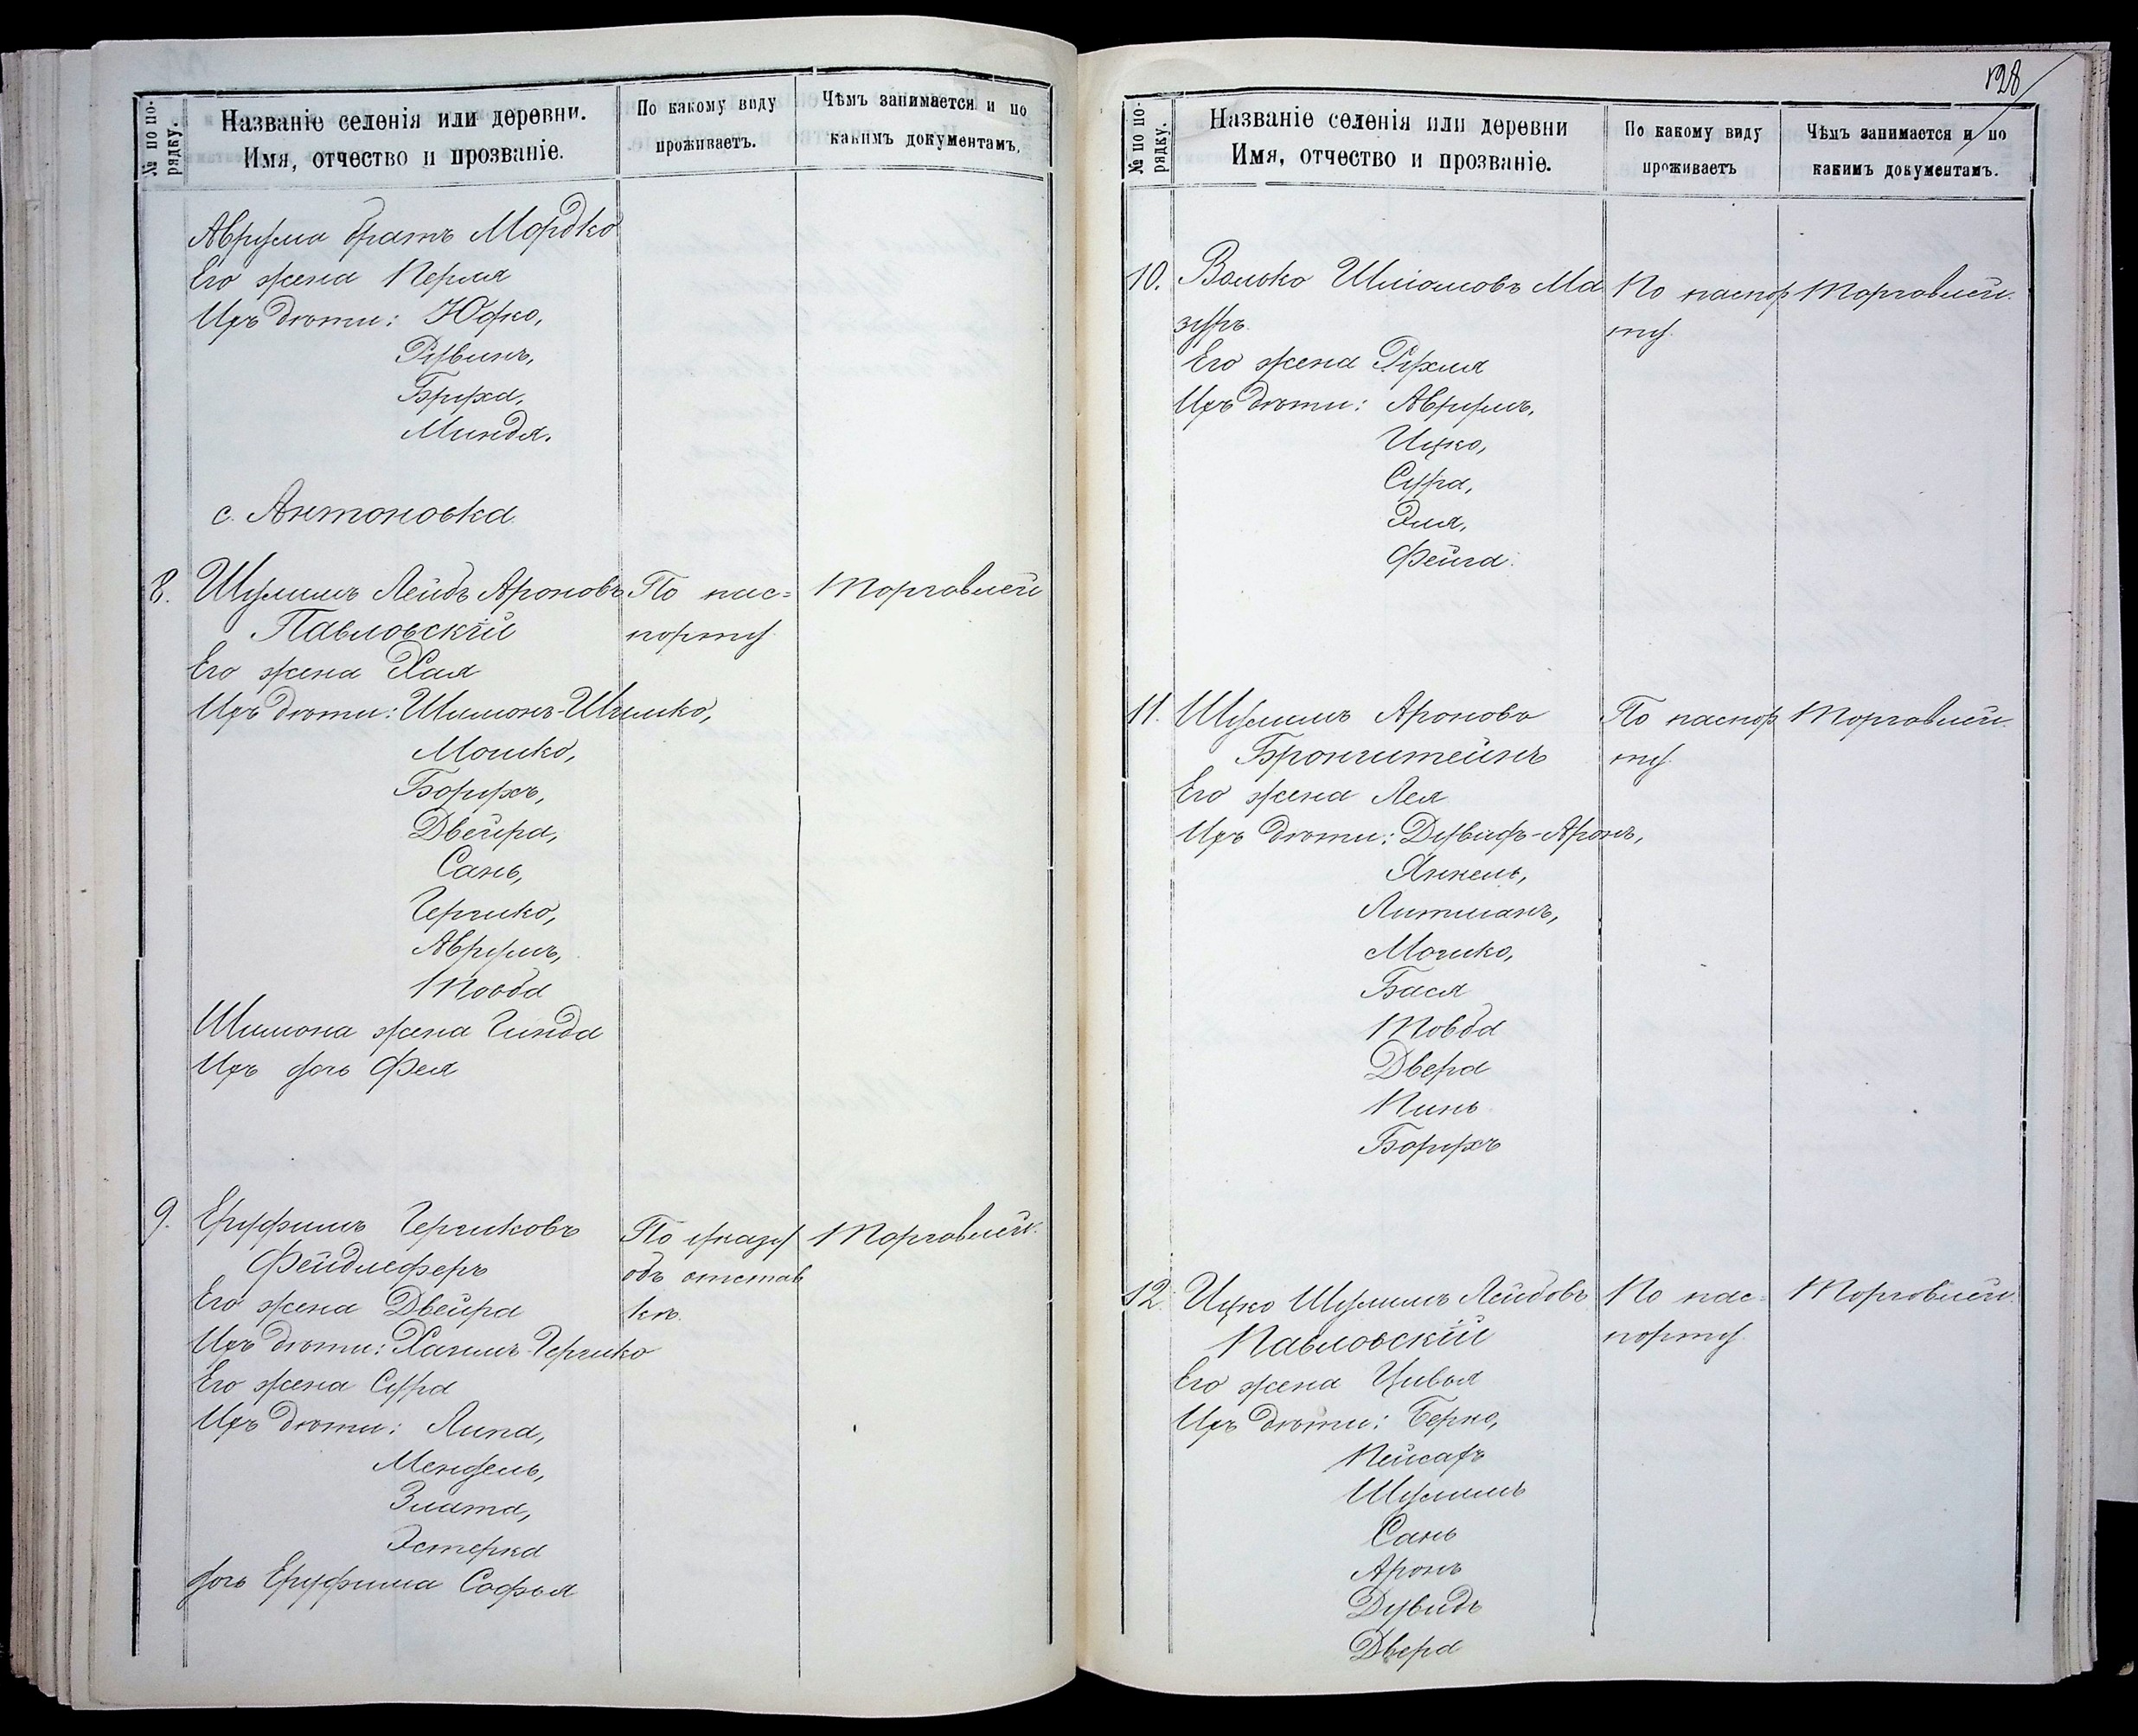 № по по-
рядку.
Названіе селенія или деревни.
Имя, отчество и прозваніе.
По какому виду
проживаетъ.
Чѣмъ занимается и по
какимъ документамъ.
Аврума братъ Мордко
Его жена Перля
Ихъ дѣти: Юфко,
Рувинъ,
Бруха,
Миндя.
с. Антоновка.
8. Шулимъ Лейдъ Ароновъ По пас= Торговлей
Павловскій порту.
Его жена Хая
Ихъ дѣти: Шимонъ-Шлимко,
Мошко,
Борухъ,
Двейра,
Сань,
Гершко,
Аврумъ,
Товба
Шимона жена Гинда
Ихъ дочь Фея
9. Еруфимъ Гершковъ По указу Торговлей.
Фейдлеферъ объ отстав
Его жена Двейра кѣ.
Ихъ дѣти: Хаимъ-Гершко
Его жена Сура
Ихъ дѣти: Липа,
Мендель,
Злата,
Эстерка
дочь Еруфима Софья
128
№ по по-
рядку.
Названіе селенія или деревни
Имя, отчество и прозваніе.
По какому виду
проживаетъ
Чѣмъ занимается и по
какимъ документамъ.
10. Волько Шліомовъ Ма По паспор Торговлей.
зуръ. ту.
Его жена Рухля
Ихъ дѣти: Аврумъ,
Ицко,
Сура,
Эля,
Фейга.
11. Шулимъ Ароновъ По паспор Торговлей.
Бронштейнъ ту.
Его жена Лея
Ихъ дѣти: Дувидъ-Аронъ,
Янкель,
Литманъ,
Мошко,
Бася
Товба
Двера
Пинь
Борухъ
12. Ицко Шулимъ Лейдовъ По пас= Торговлей.
Павловскій порту.
Его жена Цивья
Ихъ дѣти: Берко,
Пейсахъ
Шулимъ
Сань
Аронъ
Дувидъ
Двера